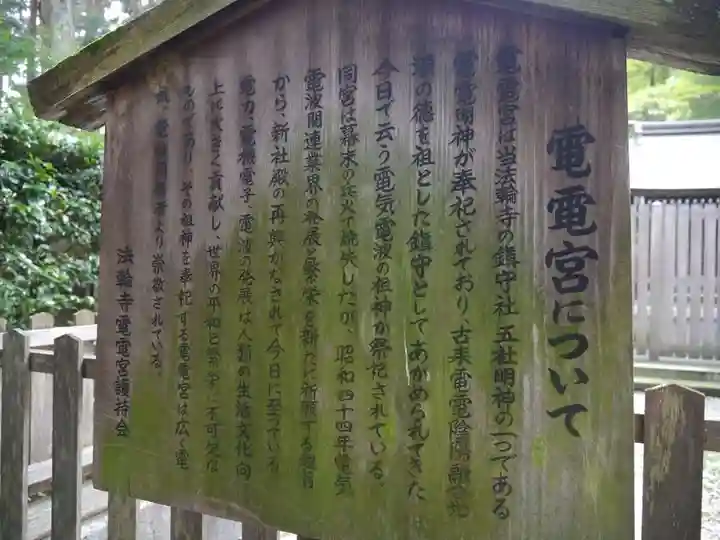 電電宮について
電電宮は当法輪寺の鎮守社五社明神の一つである
電電明神が奉祀されており、古来電電陰陽融合光
源の徳を祖とした鎮守としてあがめられてきた
今日で云う電気、電波の祖神が祭祀されている。
同宮は幕末の兵火で焼失したが、昭和四十四年電気
電波関連業界の発展と繁栄を新たに祈願する趣旨
から、新社殿の再興がなされて今日に至っている
電力、電機電子、電波の発展は人類の生活文化向
上に大きく貢献し、世界の平和と繁栄に不可欠な
ものであり、その祖神を奉祀する電電宮は広く電
気、電波関係者より崇敬されている。
法輪寺電電宮護持会